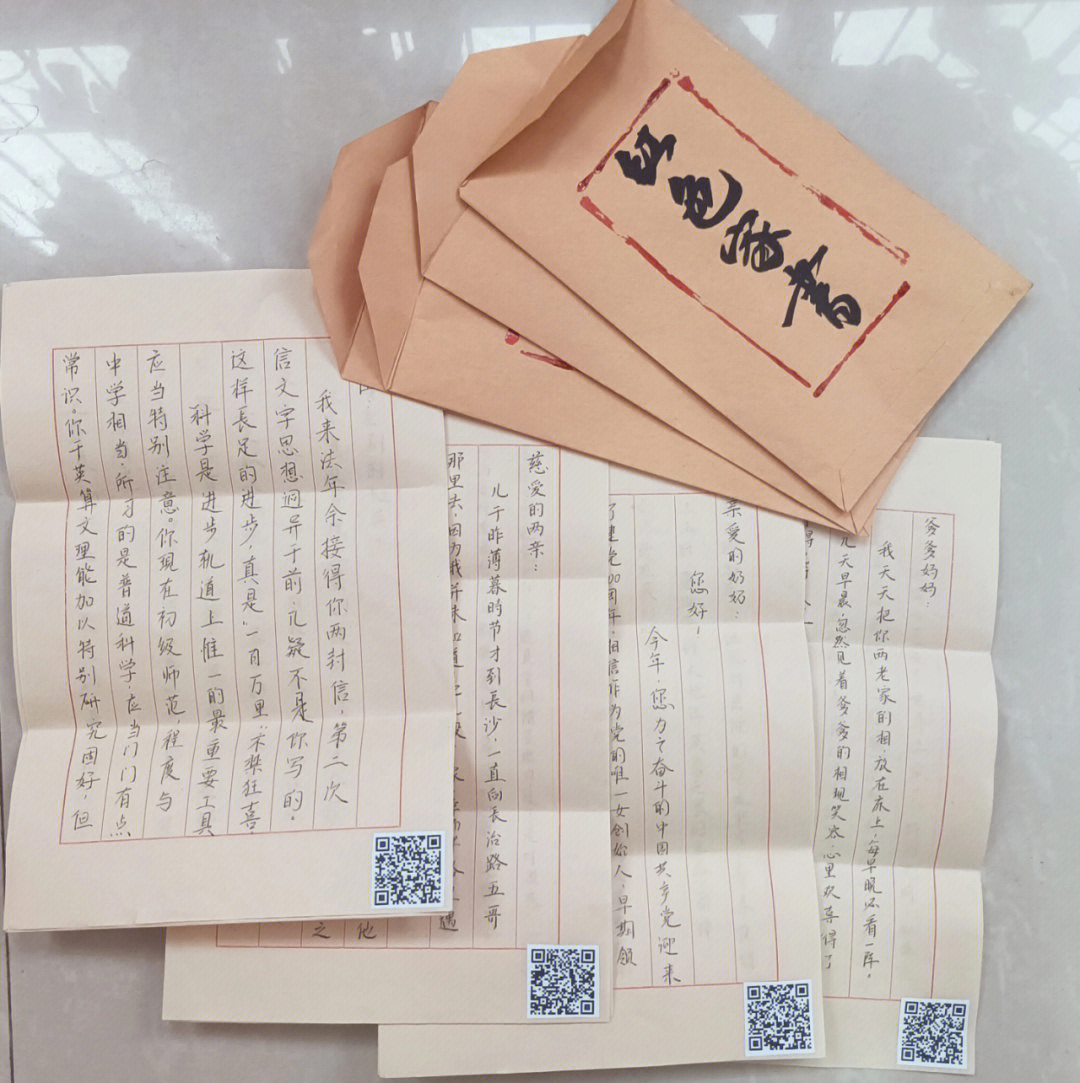 红色家书
我来法年余接得你两封信，第二次
信文字思想迥异于前，几疑不是你写的。
这样長足的进步，真是"一日万里"，不禁狂喜
科学是进步轨道上惟一的最重要工具
应当特别注意。你现在初级师范，程度与
中学相当，所习的是普通科学，应当门门有点
常识。你于英算文理能加以特别研究固好，但
慈爱的两亲：
儿于昨薄暮时节才到長沙，一直向長治路五哥
那里去，因为我并未知道
之 他
亲爱的奶奶：
您好！
今年，您为之奋斗的中国共产党迎来
了建党100周年，相信作为党的唯一女创始人，早期领
爹爹妈妈：
我天天把你两老家的相，放在床上，每早晚必看一阵。
几天早晨，忽然见着爹爹的相现笑容，心里欢喜得了